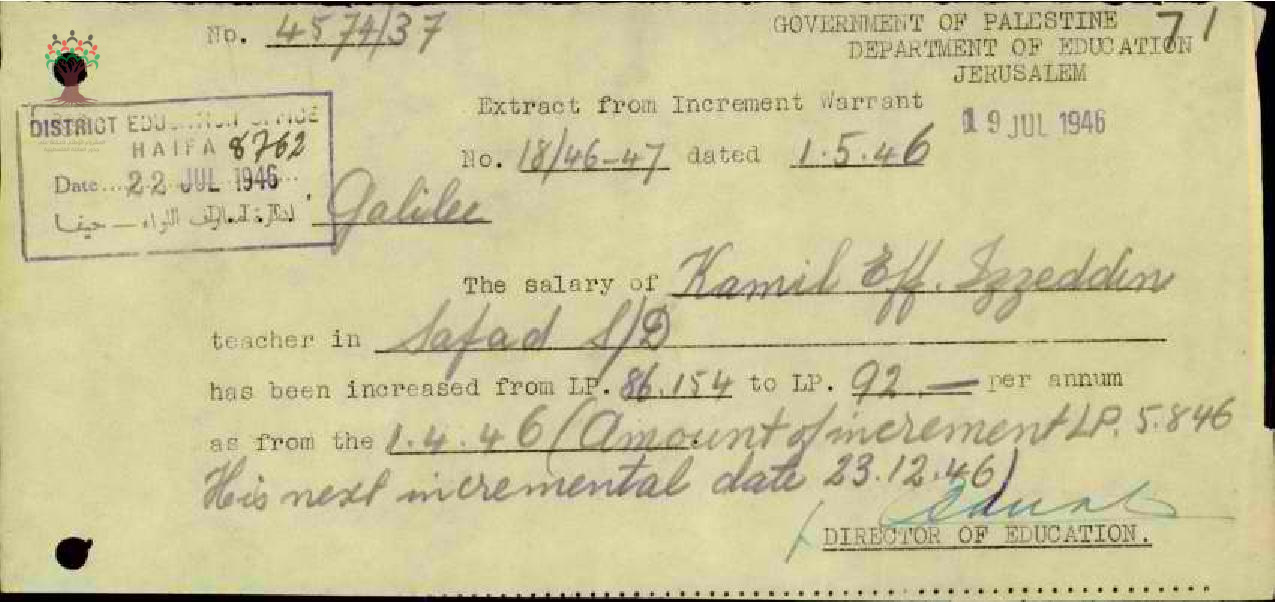 No. 4574/37
GOVERNMENT OF PALESTINE 71
DEPARTMENT OF EDUCATION
JERUSALEM
Extract from Increment Warrant
19 JUL 1946
DISTRICT EDUCATION OFFICE
HAIFA 8762
Date.... 22 JUL 1946...
اللواء — حيفا
No. 18/46-47 dated 1.5.46
D.I.E. Galilee
The salary of Kamil Eff. Izzeddin
teacher in Safad S/D
has been increased from LP. 86.154 to LP. 92 — per annum
as from the 1.4.46 (Amount of increment LP. 5.846
His next incremental date 23.12.46)
DIRECTOR OF EDUCATION.